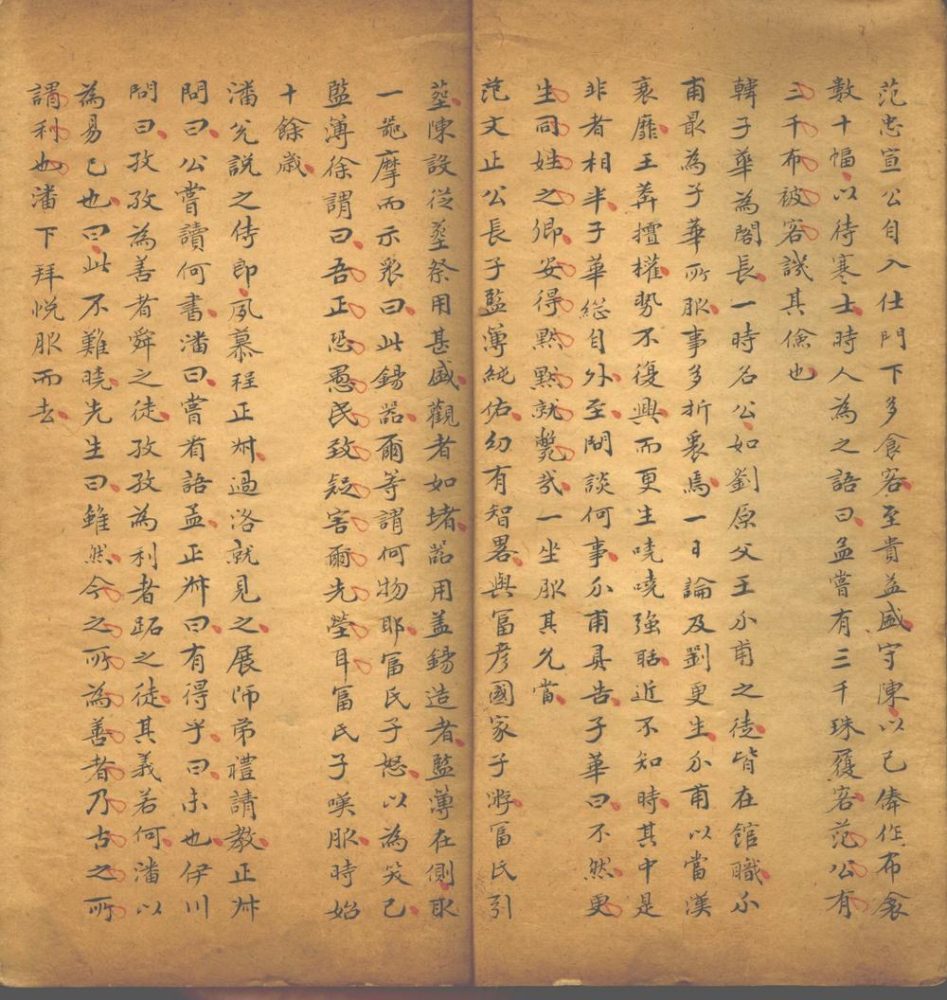 范忠宣公自入仕門下多食客至貴益盛守陳以己俸作布衾
數十幅以待寒士時人為之語曰孟嘗有三千珠履客范公有
三千布被客譏其儉也
韓子華為閣長一時名公如劉原父王介甫之徒皆在館職介
甫最為子華所服事多折衷焉一日論及劉更生介甫以當漢
衰靡王莽擅權勢不復興而更生嘵嘵強聒近不知時其中是
非者相半子華緫自外至問談何事介甫具告子華曰不然更
生同姓之卿安得黙黙就斃㢤一坐服其允當
范文正公長子監簿純佑幼有智畧與冨彦國家子游冨氏引
塟陳設從塟祭用甚盛觀者如堵器用盖錫造者監薄在側取
一 摩而示衆曰此錫器爾等謂何物耶冨民子怒以為笑己
監薄徐謂曰吾正恐愚民致疑害爾先塋耳冨氏子嘆服時始
十餘歲
潘兊說之侍郎夙慕程正叔過洛就見之展師弟禮請教正叔
問曰公嘗讀何書潘曰嘗看語孟正叔曰有得乎曰未也伊川
問曰孜孜為善者舜之徒孜孜為利者跖之徒其義若何潘以
為易己也曰此不難曉先生曰雖然今之所為善者乃古之所
謂利也潘下拜悅服而去